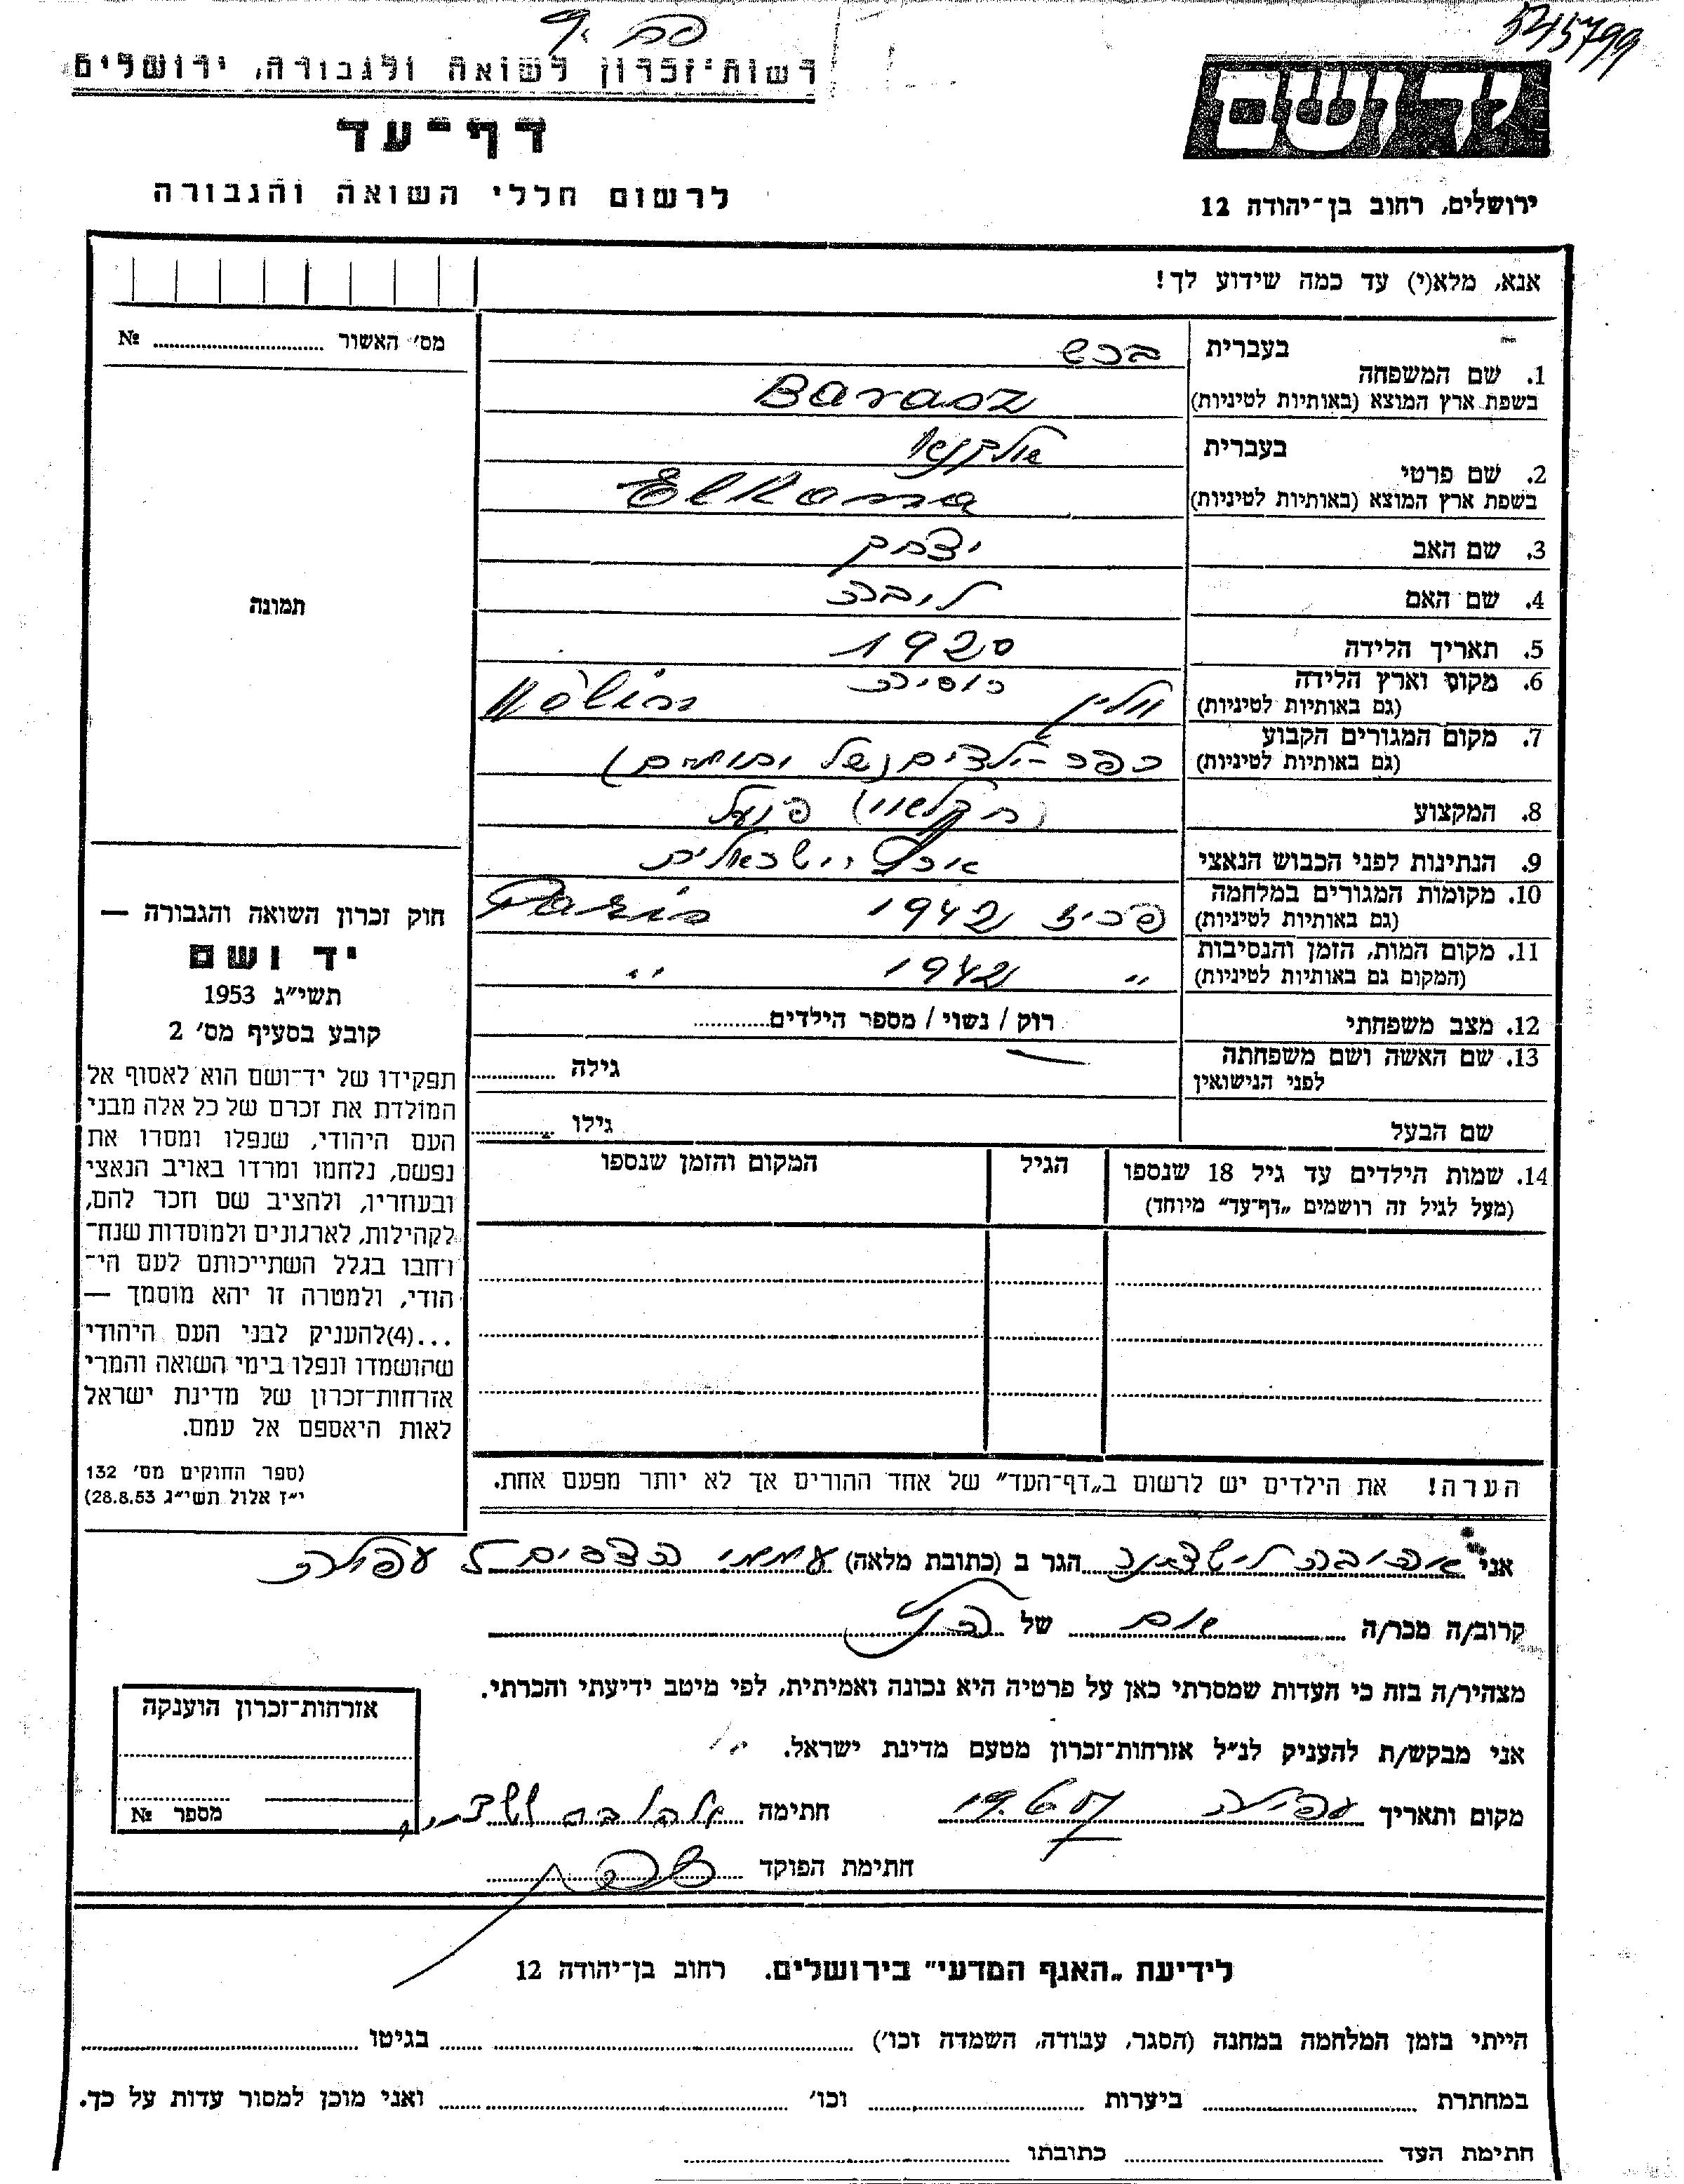 5245799
רשות־זכרון לשואה ולגבורה, ירושלים
דף־עד
לרשום חללי השואה והגבורה
ירושלים, רחוב בן־יהודה 12
אנא, מלא(י) עד כמה שידוע לך!
מס׳ האשור № 
בעברית ברש
1. שם המשפחה
בשפת ארץ המוצא (באותיות לטיניות) Barasz
בעברית אלקנא
2. שם פרטי
בשפת ארץ המוצא (באותיות לטיניות) Elkana
3. שם האב יצחק
4. שם האם ליבה
5. תאריך הלידה 1920
6. מקום וארץ הלידה רוסיה
(גם באותיות לטיניות) ווולין Wolin
7. מקום המגורים הקבוע
(גם באותיות לטיניות) כפר־ילדים (של יתומים)
8. המקצוע (חקלאי) פועל
9. הנתינות לפני הכבוש הנאצי ארץ ישראלית
10. מקומות המגורים במלחמה
(גם באותיות לטיניות) פריז 1942 Paris
11. מקום המות, הזמן והנסיבות
(המקום גם באותיות לטיניות) " 1942 "
12. מצב משפחתי רוק / נשוי / מספר הילדים
13. שם האשה ושם משפחתה
לפני הנישואין גילה
שם הבעל גילו
14. שמות הילדים עד גיל 18 שנספו הגיל המקום והזמן שנספו
(מעל לגיל זה רושמים „דף־עד״ מיוחד)
תמונה
חוק זכרון השואה והגבורה —
יד ושם
תשי״ג 1953
קובע בסעיף מס׳ 2
תפקידו של יד־ושם הוא לאסוף אל
המולדת את זכרם של כל אלה מבני
העם היהודי, שנפלו ומסרו את
נפשם, נלחמו ומרדו באויב הנאצי
ובעוזריו, ולהציב שם וזכר להם,
לקהילות, לארגונים ולמוסדות שנח־
רחבו בגלל השתייכותם לעם הי־
הודי, ולמטרה זו יהא מוסמך —
...(4)להעניק לבני העם היהודי
שהושמדו ונפלו בימי השואה והמרי
אזרחות־זכרון של מדינת ישראל
לאות היאספם אל עמם.
(ספר החוקים מס׳ 132
י״ז אלול תשי״ג 28.8.53)
הערה! את הילדים יש לרשום ב„דף־העד״ של אחד ההורים אך לא יותר מפעם אחת.
אני אהובה הגר ב (כתובת מלאה) עפולה
קרוב/ה מכר/ה של הנ"ל
מצהיר/ה בזה כי העדות שמסרתי כאן על פרטיה היא נכונה ואמיתית, לפי מיטב ידיעתי והכרתי.
אני מבקש/ת להעניק לנ״ל אזרחות־זכרון מטעם מדינת ישראל.
מקום ותאריך עפולה חתימה
חתימת הפוקד
אזרחות־זכרון הוענקה
מספר №
לידיעת „האגף המדעי״ בירושלים. רחוב בן־יהודה 12
הייתי בזמן המלחמה במחנה (הסגר, עבודה, השמדה וכו׳) בגיטו
במחתרת ביערות וכו׳ ואני מוכן למסור עדות על כך.
חתימת העד כתובתו